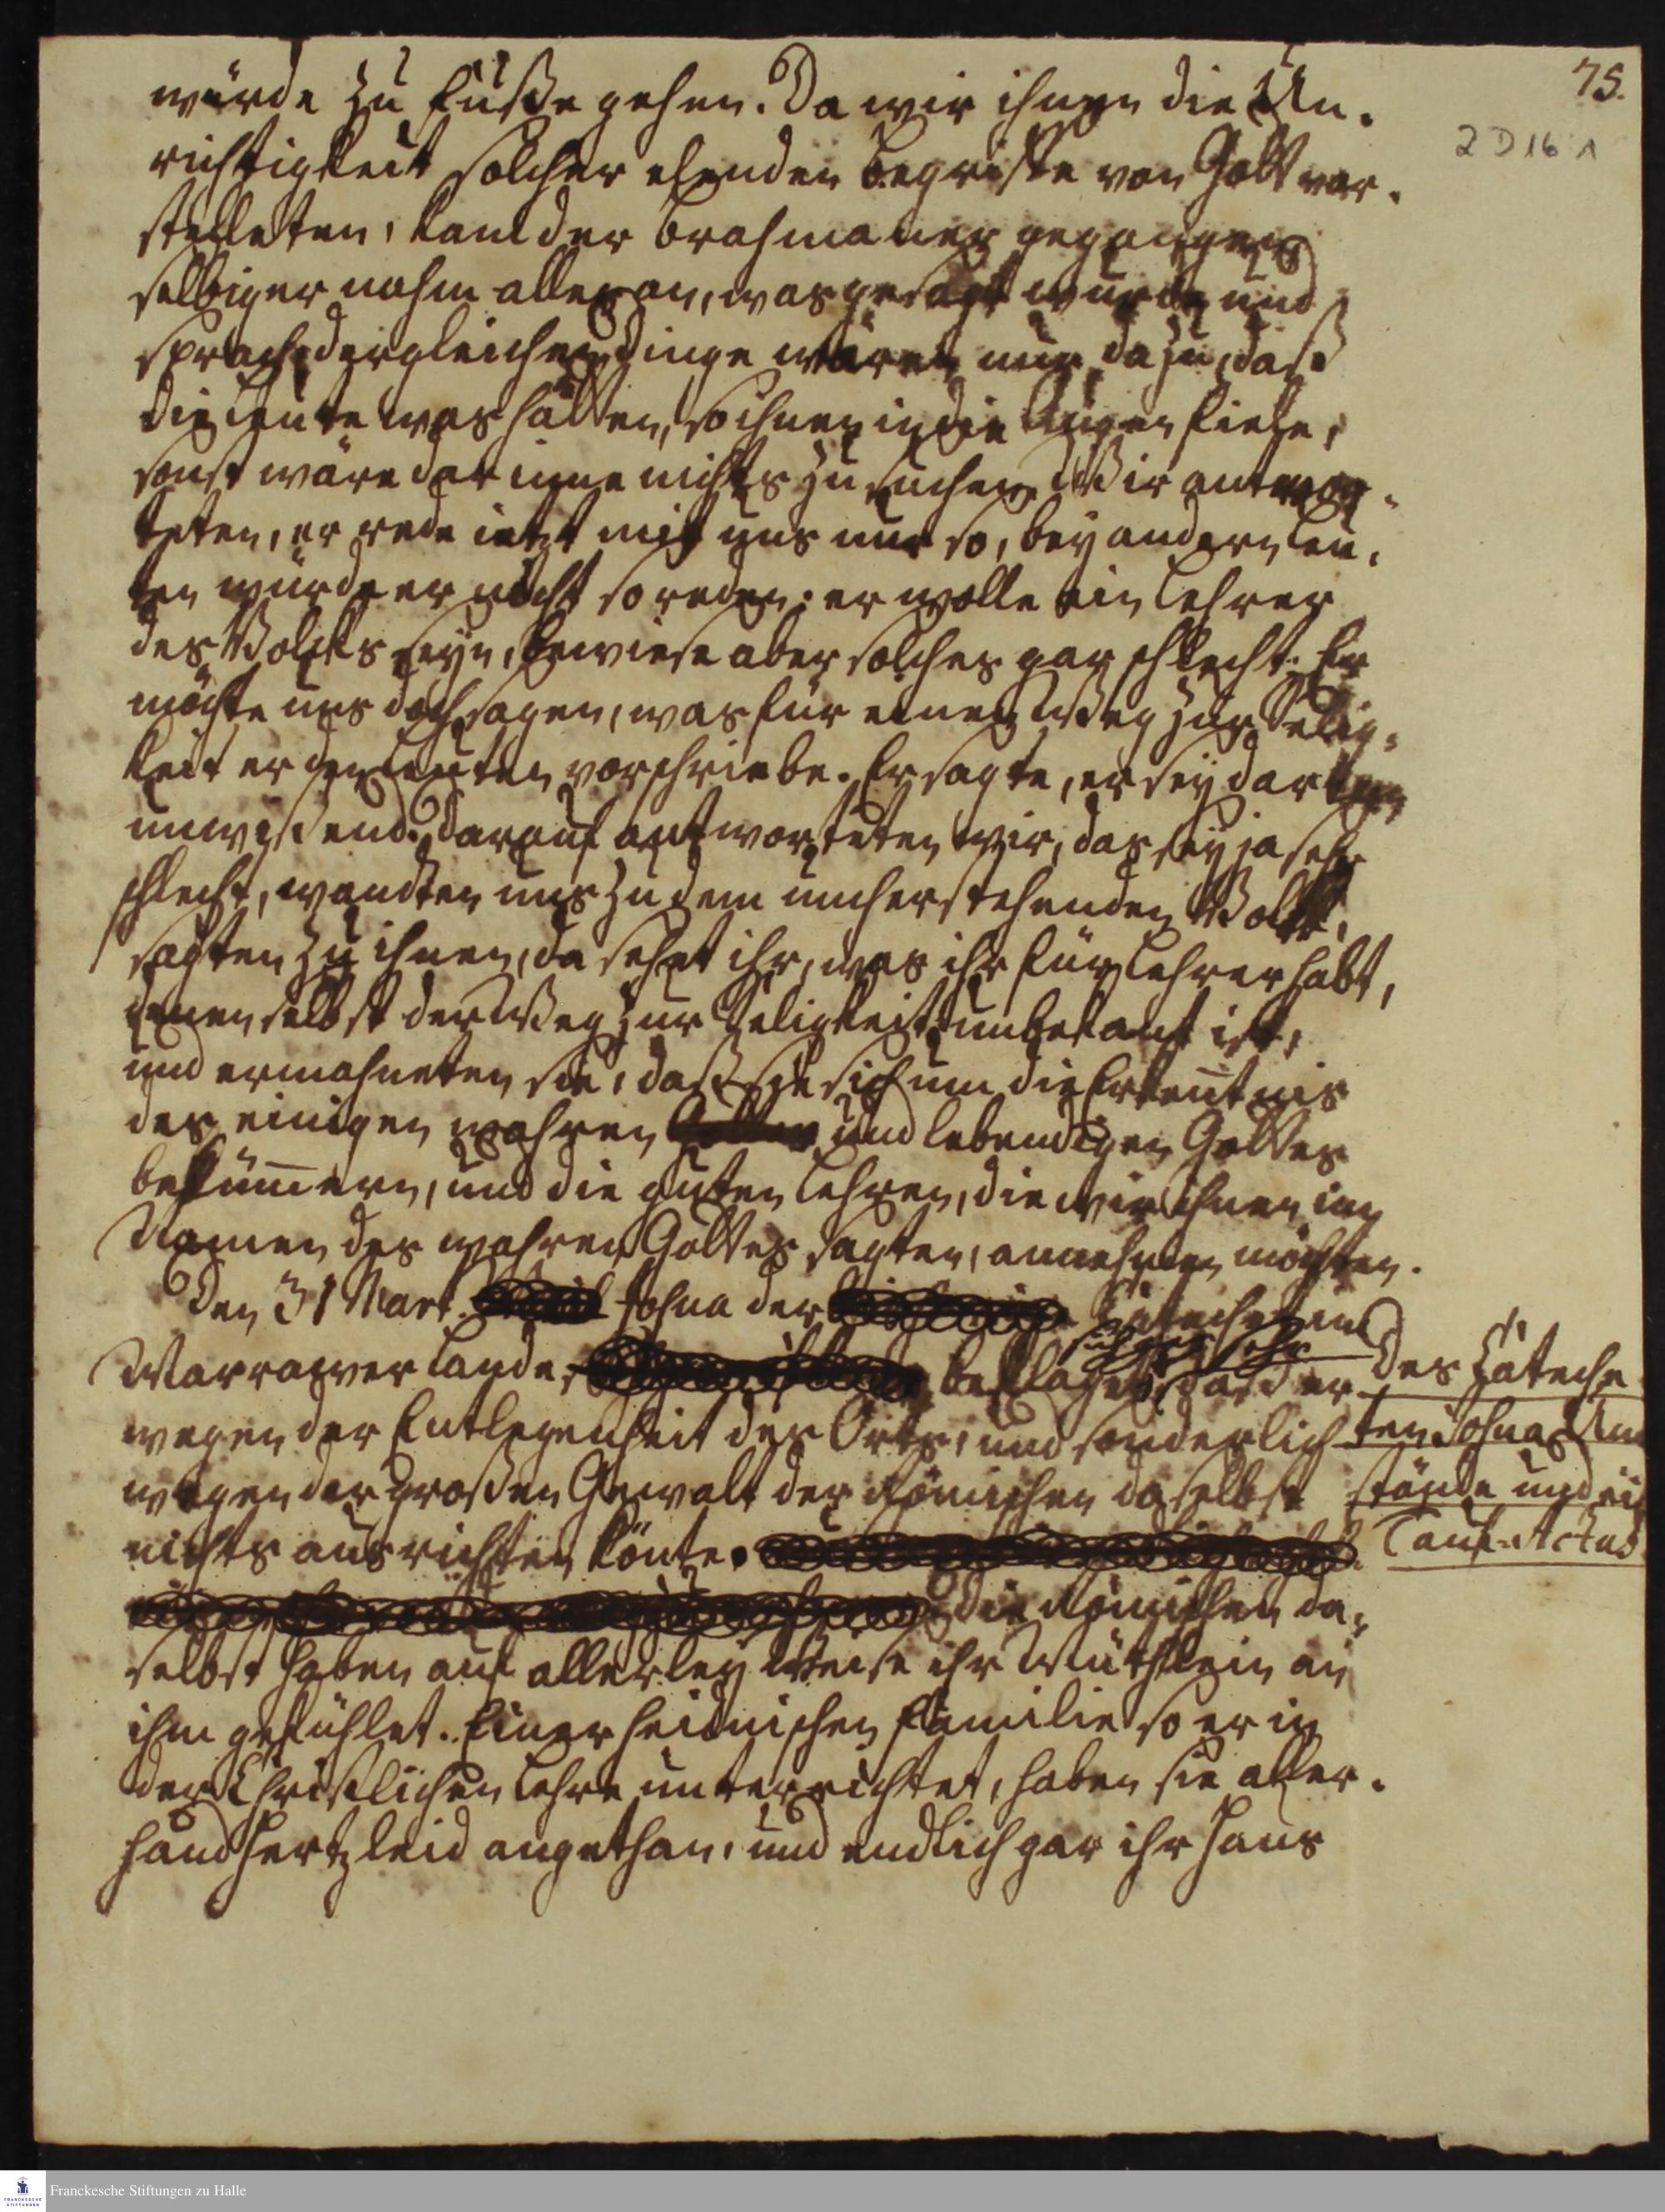 75.
2 D 16 1
würde zu Fuße gehen. Da wir ihnen die Un-
richtigkeit solcher elenden Begriffe von Gott vor-
stelleten, kam der Brahmaner gegangen
selbiger nahm alles an, was gesagt wurde und
sprach: dergleichen Dinge wären nur dazu, daß
die Leute was hätten, so ihnen in die Augen fiele,
sonst wäre darinne nichts zu suchen. Wir antwor-
teten, er rede ietzt mit uns nur so, bey andern Leu-
ten würde er nicht so reden: er wolle ein Lehrer
des Volcks seyn, bewiese aber solches gar schlecht. Er
möchte uns doch sagen, was für einen Weg zur Selig-
keit er den Leuten vorschriebe. Er sagte, er sey darinn
unwißend. Darauf antworteten wir, das sey ja sehr
schlecht, wandten uns zu dem umherstehenden Volck,
sagten zu ihnen, da sehet ihr, was ihr für Lehrer habt,
denen selbst der Weg zur Seligkeit unbekant ist,
und ermahneten sie, daß sie sich um die Erkentnis
des einigen wahren und lebendigen Gottes
bekümmern, und die guten Lehren, die wir ihnen im
Namen des wahren Gottes sagten, annehmen möchten.
Den 31 Mart. Johna der Catechet im
Marrawer Lande, sich gar sehr beklaget, daß er
wegen der Entlegenheit des Orts, und sonderlich
wegen der großen Gewalt der Römischen daselbst
nichts ausrichten könte. 
die Römischen da-
selbst haben auf allerley Weise ihr Müthlein an
ihm gekühlet. Einer heidnischen Familie so er in
der Christlichen Lehre unterrichtet, haben sie aller-
hand Hertzleid angethan, und endlich gar ihr Haus
Des Cateche
ten Johnas Um
stände und ein
Tauf-Actus
Franckesche Stiftungen zu Halle